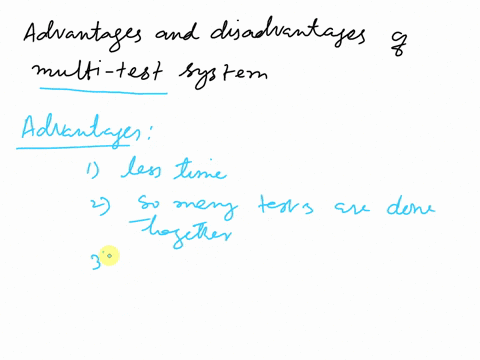 Advantages and disadvantages of
multi-test system
Advantages:
1) less time
2) so many tests are done
together
3)